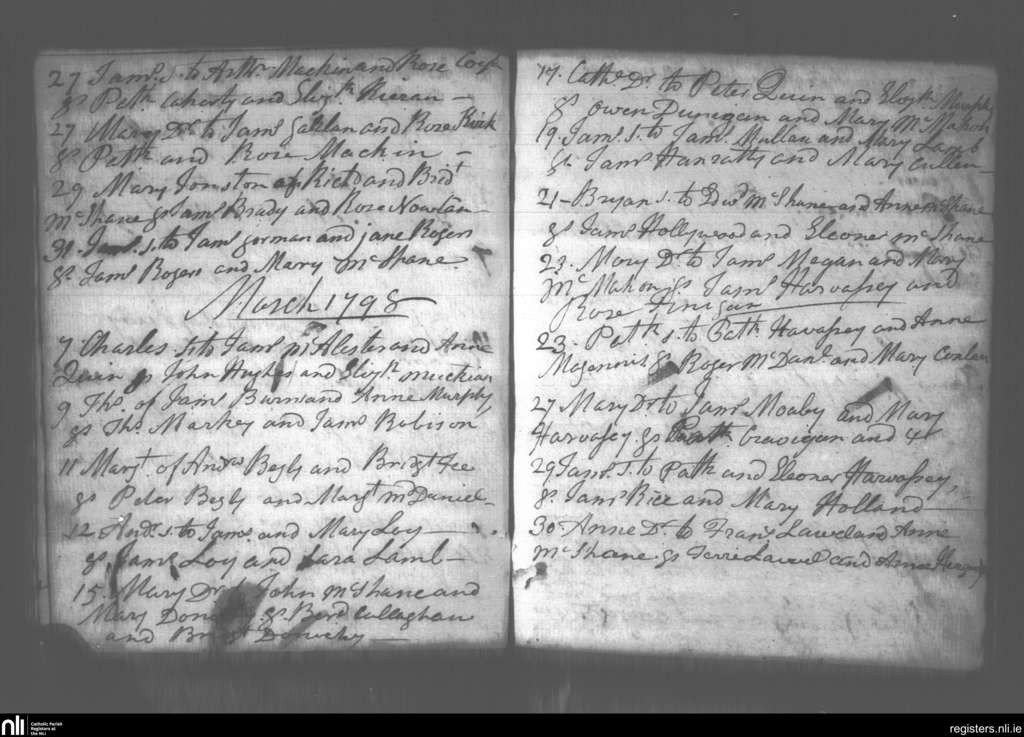 27 Jams. s. to Arthr. Mackin and Rose
gs Patk. and Elizth. Kieran —
27 Mary Dr. to Jams and Rose
gs Patk and Rose Mackin —
29 Mary Jonston of Richd and Bridt
McShane gs Jams Brady and Rose Nowlan
31. Jams. s. to Jams gorman and jane Rogers
gs. Jams Rogers and Mary McShane.
March 1798
7 Charles s. to Jams McAlester and Anne
Quin gs John Hughes and Elizth.
9 Ths. of Jams Burns and Anne Murphy
gs Ths. Markey and Jams Robison
11 Margt of Andrw Begly and Bridgt Fee
gs Peter Begly and Margt McDaniel—
12 Andr. s. to Jams. and Mary Loy —
gs. Jams Loy and Sara Lamb —
15. Mary Dr. to John McShane and
Mary gs Bard Callaghan
and Bridgt —
17. Cathe. Dr. to Peter Quin and Elizth. Murphy
gs owen Dunegan and Mary McMahon
19. Jams. s. to Jams. Mullan and Mary Lamb
gs. Jams Hanratty and Mary Cullen—
21 - Bryan s. to Edwd McShane and Anne McShane
gs Jams Hollywood and Eleoner McShane
23. Mary Dr. to Jams Megan and Mary
McMahon gs Jams Harvassey and
Rose Finigan
23. Patk. s. to Patk. Havassey and Anne
gs Roger McDanl. and Mary Conlan
27. Mary Dr. to Jams Moaby and Mary
Harvassey gs Patk. and
29 Jams. s. to Patk and Eleoner Harvassey,
gs. Jams Rice and Mary Holland
30. Anne Dr. to Frans Lawel and Anne
McShane. gs Terre Lawel and Anne
nli
Catholic Parish
Registers at
the NLI
registers.nli.ie